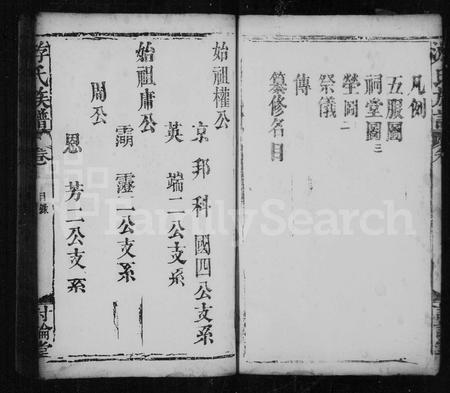 凡例
五服圖
祠堂圖三
塋圖二
祭儀
傳
纂修名目
始祖權公
京邦科國四公支系
英端二公支系
始祖庸公
霸靈二公支系
周公
恩芳二公支系
游氏族譜 卷 目錄
FamilySearch